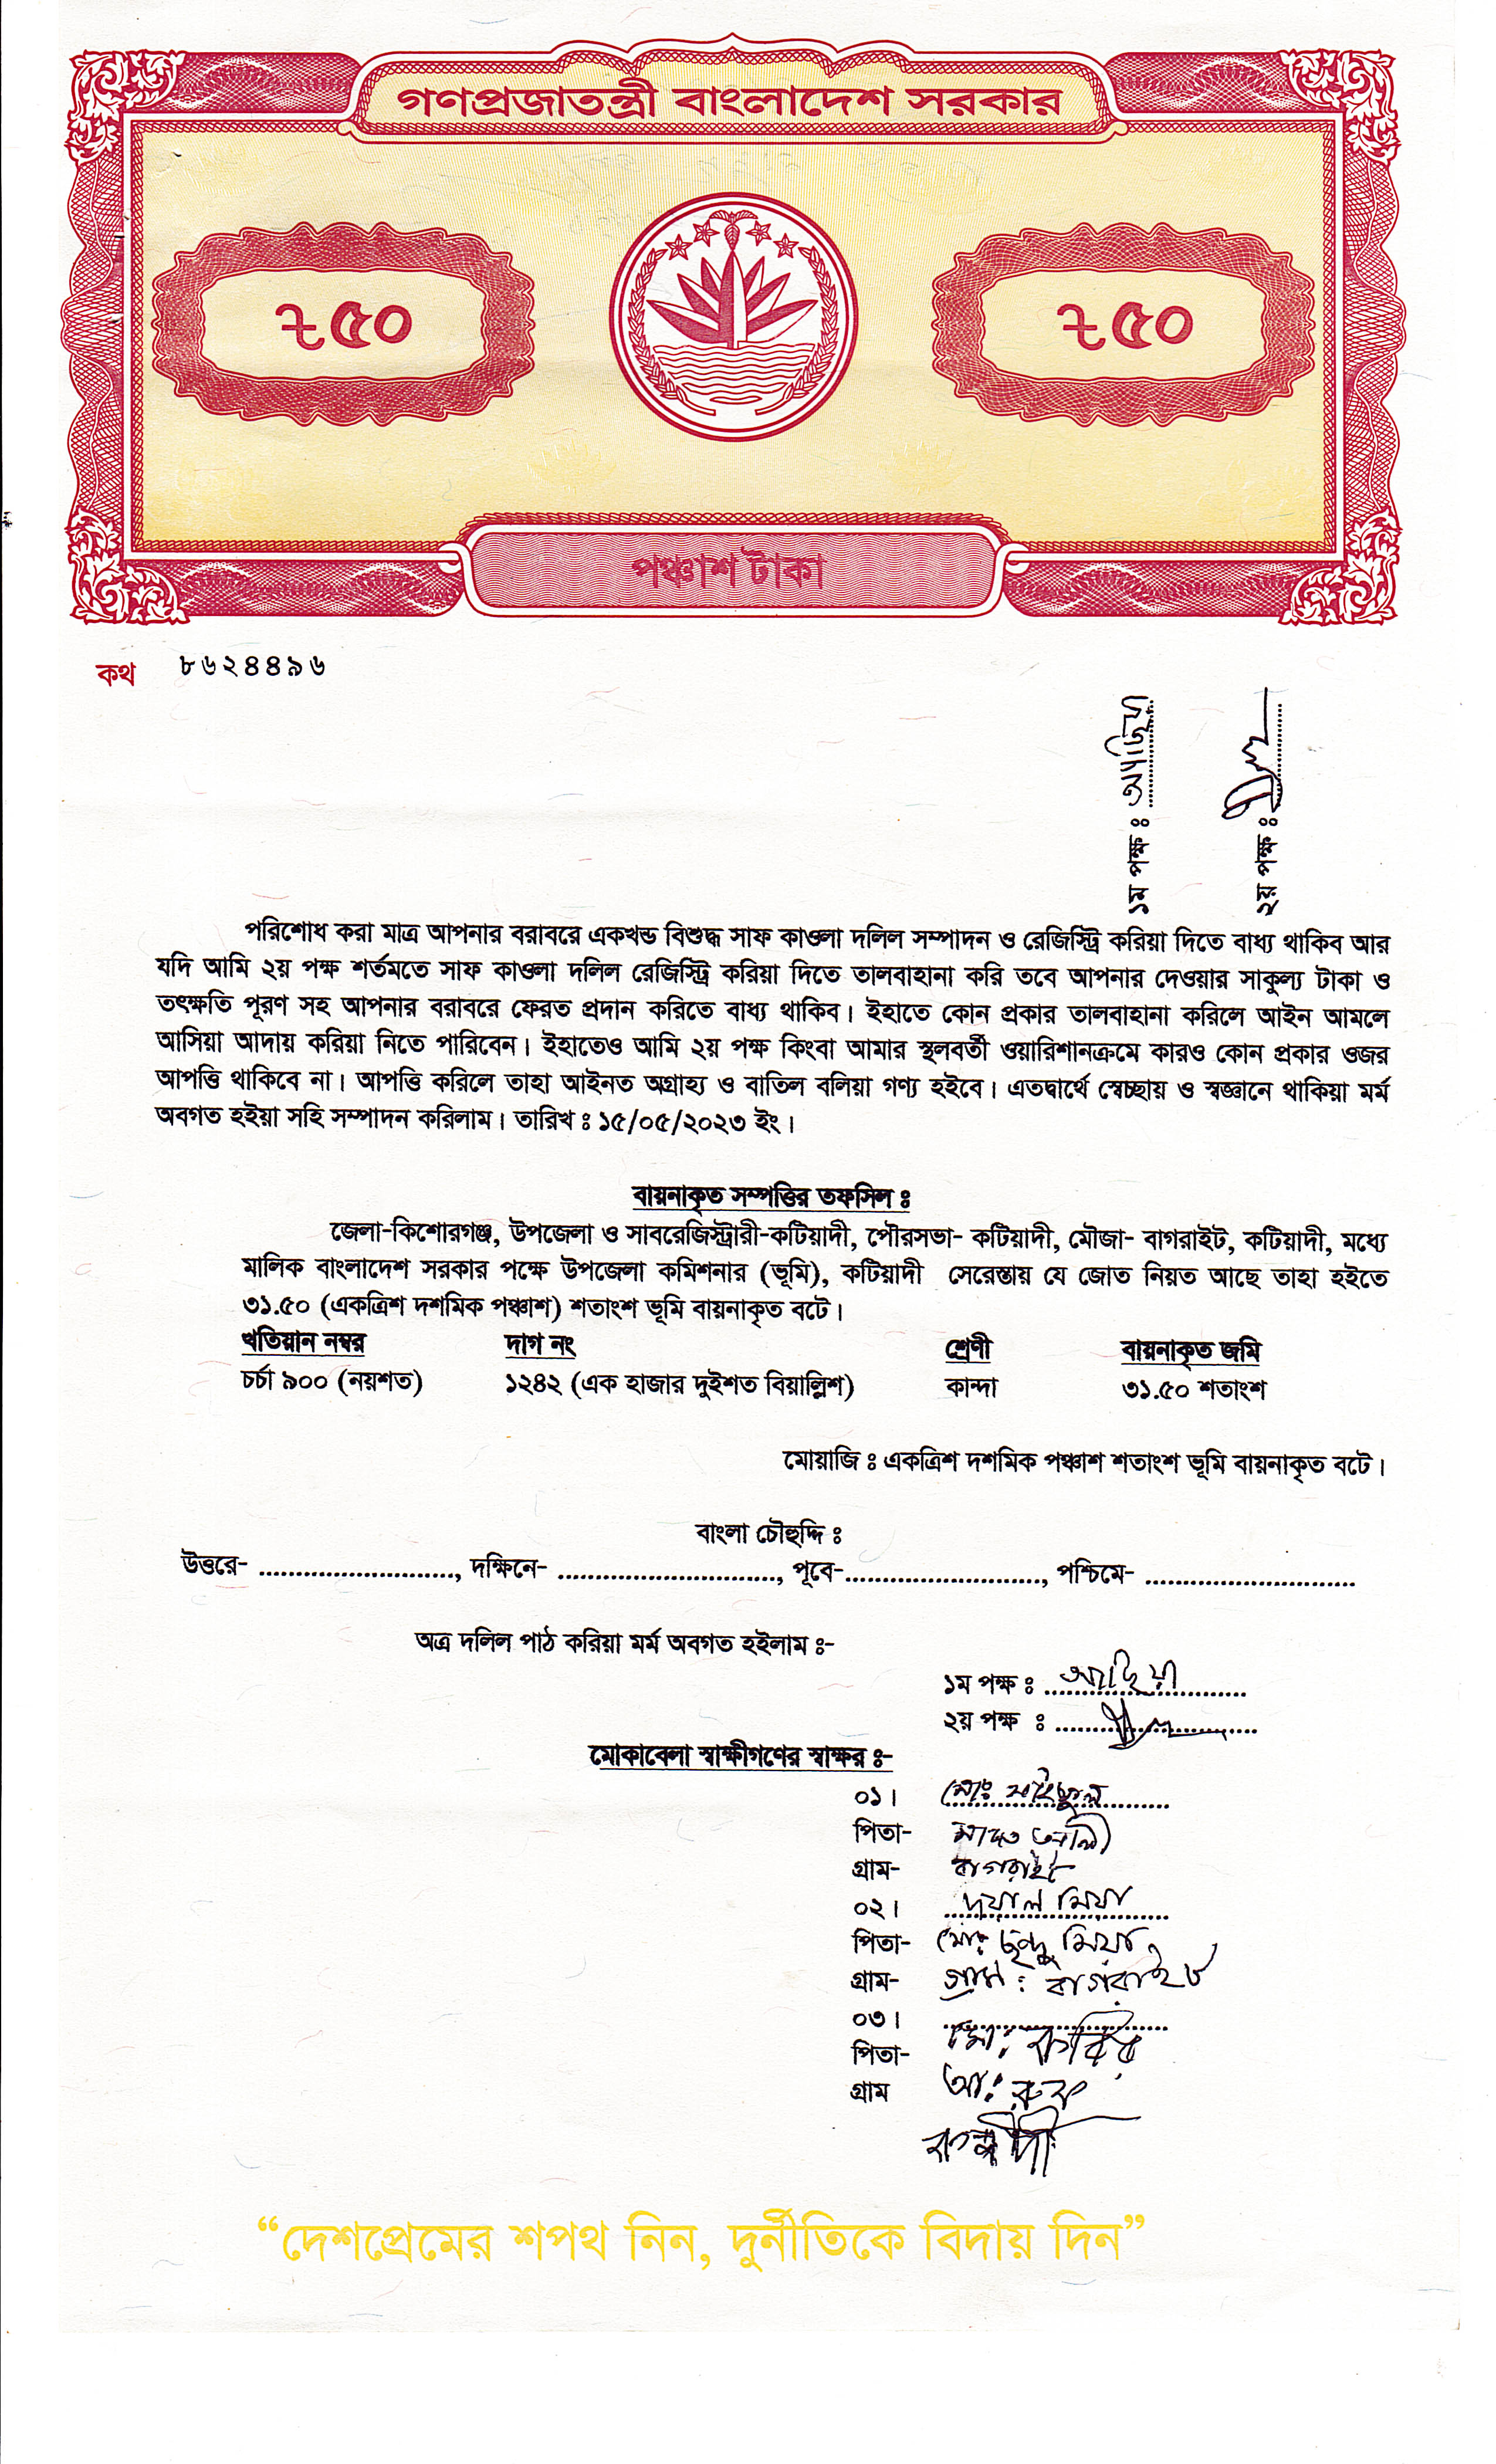 গণপ্রজাতন্ত্রী বাংলাদেশ সরকার
৳ ৫০ ৳ ৫০
পঞ্চাশ টাকা
কথ ৮৬২৪৪৯৬
১ম পক্ষ ঃ
২য় পক্ষ ঃ
পরিশোধ করা মাত্র আপনার বরাবরে একখন্ড বিশুদ্ধ সাফ কাওলা দলিল সম্পাদন ও রেজিস্ট্রি করিয়া দিতে বাধ্য থাকিব আর
যদি আমি ২য় পক্ষ শর্তমতে সাফ কাওলা দলিল রেজিস্ট্রি করিয়া দিতে তালবাহানা করি তবে আপনার দেওয়ার সাকুল্য টাকা ও
তৎক্ষতি পূরণ সহ আপনার বরাবরে ফেরত প্রদান করিতে বাধ্য থাকিব। ইহাতে কোন প্রকার তালবাহানা করিলে আইন আমলে
আসিয়া আদায় করিয়া নিতে পারিবেন। ইহাতেও আমি ২য় পক্ষ কিংবা আমার স্থলবর্তী ওয়ারিশানক্রমে কারও কোন প্রকার ওজর
আপত্তি থাকিবে না। আপত্তি করিলে তাহা আইনত অগ্রাহ্য ও বাতিল বলিয়া গণ্য হইবে। এতদ্বার্থে স্বেচ্ছায় ও স্বজ্ঞানে থাকিয়া মর্ম
অবগত হইয়া সহি সম্পাদন করিলাম। তারিখ ঃ ১৫/০৫/২০২৩ ইং।
বায়নাকৃত সম্পত্তির তফসিল ঃ
জেলা-কিশোরগঞ্জ, উপজেলা ও সাবরেজিস্ট্রারী-কটিয়াদী, পৌরসভা- কটিয়াদী, মৌজা- বাগরাইট, কটিয়াদী, মধ্যে
মালিক বাংলাদেশ সরকার পক্ষে উপজেলা কমিশনার (ভূমি), কটিয়াদী সেরেস্তায় যে জোত নিয়ত আছে তাহা হইতে
৩১.৫০ (একত্রিশ দশমিক পঞ্চাশ) শতাংশ ভূমি বায়নাকৃত বটে।
খতিয়ান নম্বর দাগ নং শ্রেণী বায়নাকৃত জমি
চর্চা ৯০০ (নয়শত) ১২৪২ (এক হাজার দুইশত বিয়াল্লিশ) কান্দা ৩১.৫০ শতাংশ
মোয়াজি ঃ একত্রিশ দশমিক পঞ্চাশ শতাংশ ভূমি বায়নাকৃত বটে।
বাংলা চৌহুদ্দি ঃ
উত্তরে- .........................., দক্ষিনে- ............................., পূবে-.........................., পশ্চিমে- ............................
অত্র দলিল পাঠ করিয়া মর্ম অবগত হইলাম ঃ-
১ম পক্ষ ঃ
২য় পক্ষ ঃ
মোকাবেলা স্বাক্ষীগণের স্বাক্ষর ঃ-
০১। মোঃ
পিতা-
গ্রাম- বাগরাইট
০২। দয়াল মিয়া
পিতা- মোঃ ছন্দু মিয়া
গ্রাম- গ্রাম : বাগরাইট
০৩।
পিতা- মো: কবির
গ্রাম আ: রুফ
“দেশপ্রেমের শপথ নিন, দুর্নীতিকে বিদায় দিন”